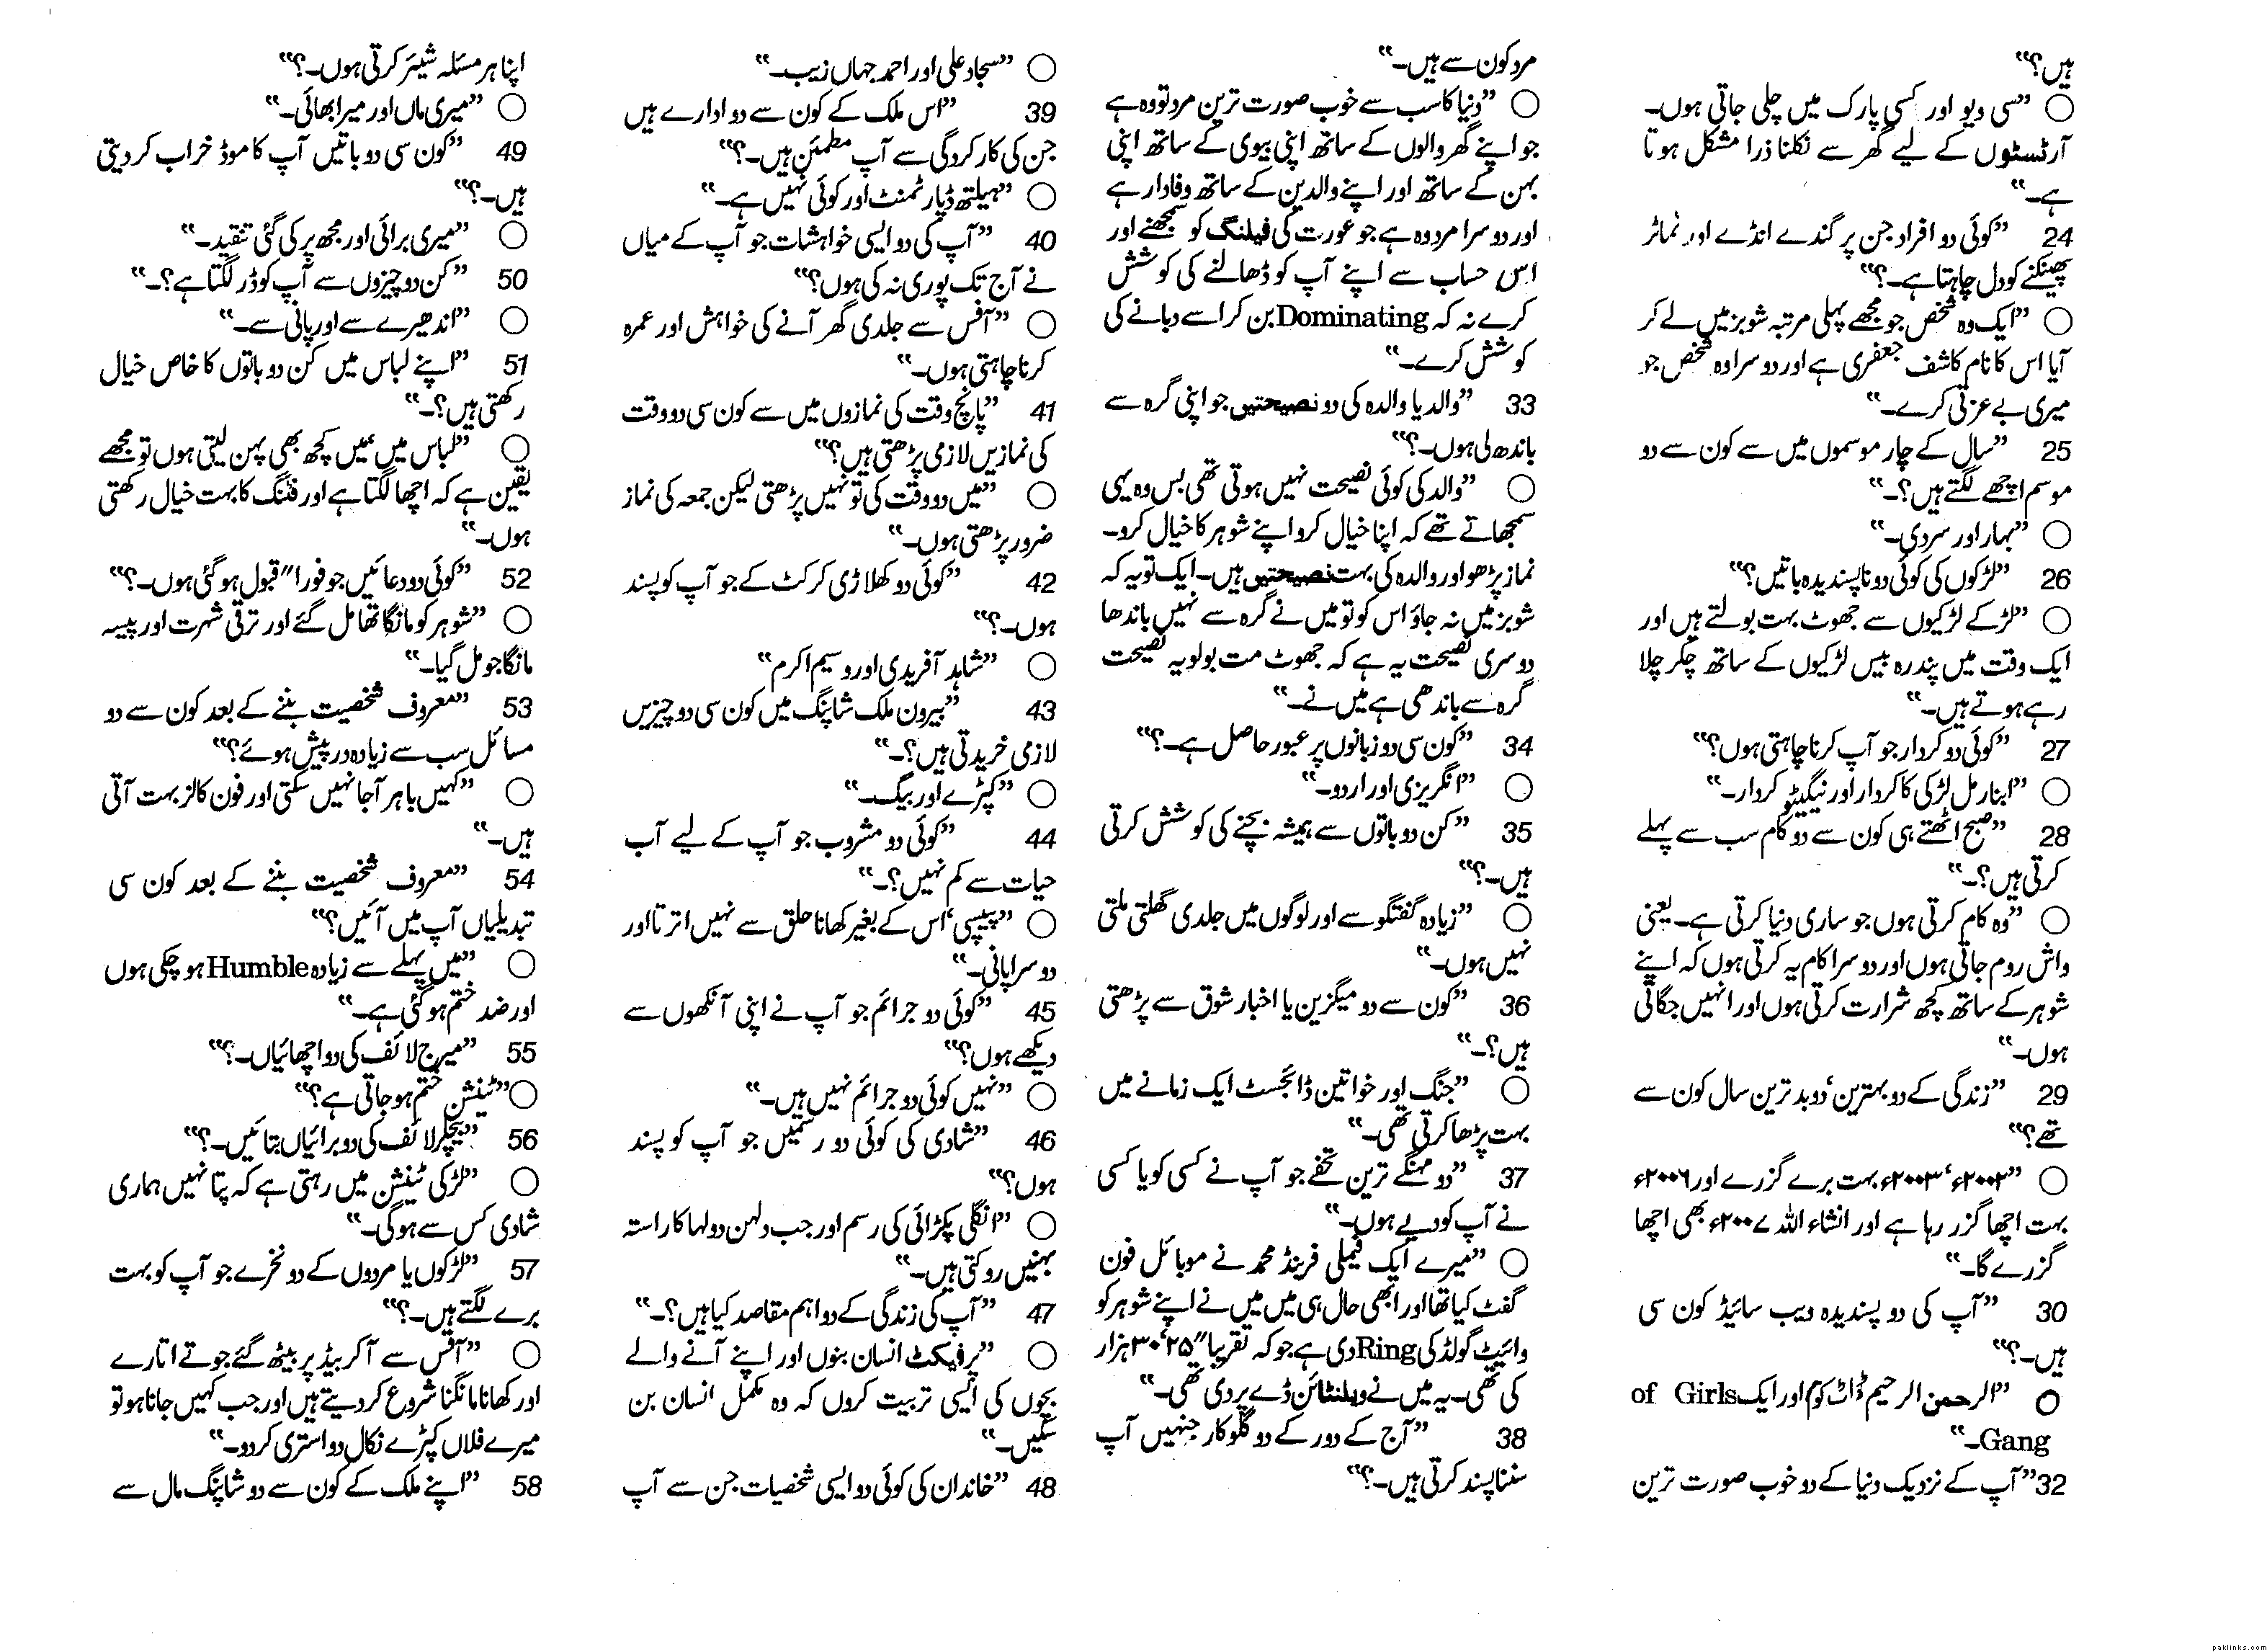 ہیں؟“
○ ”سی ویو اور کسی پارک میں چلی جاتی ہوں۔
آرٹسٹوں کے لیے گھر سے نکلنا ذرا مشکل ہوتا
ہے۔“
24 ”کوئی دو افراد جن پر گندے انڈے اور ٹماٹر
پھینکنے کو دل چاہتا ہے۔؟“
○ ”ایک وہ شخص جو مجھے پہلی مرتبہ شوبز میں لے کر
آیا اس کا نام کاشف جعفری ہے اور دوسرا وہ شخص جو
میری بے عزتی کرے۔“
25 ”سال کے چار موسموں میں سے کون سے دو
موسم اچھے لگتے ہیں؟۔“
○ ”بہار اور سردی۔“
26 ”لڑکوں کی کوئی دو ناپسندیدہ باتیں؟“
○ ”لڑکے لڑکیوں سے جھوٹ بہت بولتے ہیں اور
ایک وقت میں پندرہ بیس لڑکیوں کے ساتھ چکر چلا
رہے ہوتے ہیں۔“
27 ”کوئی دو کردار جو آپ کرنا چاہتی ہوں؟“
○ ”ابنارمل لڑکی کا کردار اور نیگیٹو کردار۔“
28 ”صبح اٹھتے ہی کون سے دو کام سب سے پہلے
کرتی ہیں؟۔“
○ ”وہ کام کرتی ہوں جو ساری دنیا کرتی ہے۔ یعنی
واش روم جاتی ہوں اور دوسرا کام یہ کرتی ہوں کہ اپنے
شوہر کے ساتھ کچھ شرارت کرتی ہوں اور انہیں جگاتی
ہوں۔“
29 ”زندگی کے دو بہترین‘ دو بدترین سال کون سے
تھے؟“
○ ”۲۰۰۲ء‘ ۲۰۰۳ء بہت برے گزرے اور ۲۰۰۶ء
بہت اچھا گزر رہا ہے اور انشاء اللہ ۲۰۰۷ء بھی اچھا
گزرے گا۔“
30 ”آپ کی دو پسندیدہ ویب سائیڈ کون سی
ہیں۔؟“
○ ”الرحمن الرحیم ڈاٹ کوم اور ایک of Girls
Gang۔“
32 ”آپ کے نزدیک دنیا کے دو خوب صورت ترین
مرد کون سے ہیں۔“
○ ”دنیا کا سب سے خوب صورت ترین مرد تو وہ ہے
جو اپنے گھر والوں کے ساتھ اپنی بیوی کے ساتھ اپنی
بہن کے ساتھ اور اپنے والدین کے ساتھ وفادار ہے
اور دوسرا مرد وہ ہے جو عورت کی فیلنگ کو سمجھنے اور
اس حساب سے اپنے آپ کو ڈھالنے کی کوشش
کرے نہ کہ Dominating بن کر اسے دبانے کی
کوشش کرے۔“
33 ”والد یا والدہ کی دو نصیحتیں جو اپنی گرہ سے
باندھ لی ہوں۔؟“
○ ”والد کی کوئی نصیحت نہیں ہوتی تھی بس وہ یہی
سمجھاتے تھے کہ اپنا خیال کرو اپنے شوہر کا خیال کرو۔
نماز پڑھو اور والدہ کی بہت نصیحتیں ہیں۔ ایک تو یہ کہ
شوبز میں نہ جاؤ اس کو تو میں نے گرہ سے نہیں باندھا
دوسری نصیحت یہ ہے کہ جھوٹ مت بولو یہ نصیحت
گرہ سے باندھی ہے میں نے۔“
34 ”کون سی دو زبانوں پر عبور حاصل ہے۔؟“
○ ”انگریزی اور اردو۔“
35 ”کن دو باتوں سے ہمیشہ بچنے کی کوشش کرتی
ہیں۔؟“
○ ”زیادہ گفتگو سے اور لوگوں میں جلدی گھلتی ملتی
نہیں ہوں۔“
36 ”کون سے دو میگزین یا اخبار شوق سے پڑھتی
ہیں؟۔“
○ ”جنگ اور خواتین ڈائجسٹ ایک زمانے میں
بہت پڑھا کرتی تھی۔“
37 ”دو مہنگے ترین تحفے جو آپ نے کسی کو یا کسی
نے آپ کو دیے ہوں۔“
○ ”میرے ایک فیملی فرینڈ محمد نے موبائل فون
گفٹ کیا تھا اور ابھی حال ہی میں میں نے اپنے شوہر کو
وائیٹ گولڈ کی Ring دی ہے جو کہ تقریبا“ ۲۵‘ ۳۰ ہزار
کی تھی۔ یہ میں نے ویلنٹائن ڈے پر دی تھی۔“
38 ”آج کے دور کے دو گلوکار جنہیں آپ
سننا پسند کرتی ہیں۔؟“
○ ”سجاد علی اور احمد جہاں زیب۔“
39 ”اس ملک کے کون سے دو ادارے ہیں
جن کی کارکردگی سے آپ مطمئن ہیں۔؟“
○ ”ہیلتھ ڈپارٹمنٹ اور کوئی نہیں ہے۔“
40 ”آپ کی دو ایسی خواہشات جو آپ کے میاں
نے آج تک پوری نہ کی ہوں؟“
○ ”آفس سے جلدی گھر آنے کی خواہش اور عمرہ
کرنا چاہتی ہوں۔“
41 ”پانچ وقت کی نمازوں میں سے کون سی دو وقت
کی نمازیں لازمی پڑھتی ہیں؟“
○ ”میں دو وقت کی تو نہیں پڑھتی لیکن جمعہ کی نماز
ضرور پڑھتی ہوں۔“
42 ”کوئی دو کھلاڑی کرکٹ کے جو آپ کو پسند
ہوں۔؟“
○ ”شاہد آفریدی اور وسیم اکرم“
43 ”بیرون ملک شاپنگ میں کون سی دو چیزیں
لازمی خریدتی ہیں؟۔“
○ ”کپڑے اور بیگ۔“
44 ”کوئی دو مشروب جو آپ کے لیے آب
حیات سے کم نہیں؟۔“
○ ”پیپسی‘ اس کے بغیر کھانا حلق سے نہیں اترتا اور
دوسرا پانی۔“
45 ”کوئی دو جرائم جو آپ نے اپنی آنکھوں سے
دیکھے ہوں؟“
○ ”نہیں کوئی دو جرائم نہیں ہیں۔“
46 ”شادی کی کوئی دو رسمیں جو آپ کو پسند
ہوں؟“
○ ”انگلی پکڑائی کی رسم اور جب دلہن دولہا کا راستہ
بہنیں روکتی ہیں۔“
47 ”آپ کی زندگی کے دو اہم مقاصد کیا ہیں؟۔“
○ ”پرفیکٹ انسان بنوں اور اپنے آنے والے
بچوں کی ایسی تربیت کروں کہ وہ مکمل انسان بن
سکیں۔“
48 ”خاندان کی کوئی دو ایسی شخصیات جن سے آپ
اپنا ہر مسئلہ شیئر کرتی ہوں۔؟“
○ ”میری ماں اور میرا بھائی۔“
49 ”کون سی دو باتیں آپ کا موڈ خراب کر دیتی
ہیں۔؟“
○ ”میری برائی اور مجھ پر کی گئی تنقید۔“
50 ”کن دو چیزوں سے آپ کو ڈر لگتا ہے؟۔“
○ ”اندھیرے سے اور پانی سے۔“
51 ”اپنے لباس میں کن دو باتوں کا خاص خیال
رکھتی ہیں؟۔“
○ ”لباس میں میں کچھ بھی پہن لیتی ہوں تو مجھے
یقین ہے کہ اچھا لگتا ہے اور فٹنگ کا بہت خیال رکھتی
ہوں۔“
52 ”کوئی دو دعائیں جو فورا“ قبول ہو گئی ہوں۔؟“
○ ”شوہر کو مانگا تھا مل گئے اور ترقی شہرت اور پیسہ
مانگا جو مل گیا۔“
53 ”معروف شخصیت بننے کے بعد کون سے دو
مسائل سب سے زیادہ درپیش ہوئے؟“
○ ”کہیں باہر آ جا نہیں سکتی اور فون کالز بہت آتی
ہیں۔“
54 ”معروف شخصیت بننے کے بعد کون سی
تبدیلیاں آپ میں آئیں؟“
○ ”میں پہلے سے زیادہ Humble ہو چکی ہوں
اور ضد ختم ہو گئی ہے۔“
55 ”میرج لائف کی دو اچھائیاں۔؟“
○ ”ٹینشن ختم ہو جاتی ہے؟“
56 ”بیچلر لائف کی دو برائیاں بتائیں۔؟“
○ ”لڑکی ٹینشن میں رہتی ہے کہ پتا نہیں ہماری
شادی کس سے ہوگی۔“
57 ”لڑکوں یا مردوں کے دو نخرے جو آپ کو بہت
برے لگتے ہیں۔؟“
○ ”آفس سے آ کر بیڈ پر بیٹھ گئے جوتے اتارے
اور کھانا مانگنا شروع کر دیتے ہیں اور جب کہیں جانا ہو تو
میرے فلاں کپڑے نکال دو استری کر دو۔“
58 ”اپنے ملک کے کون سے دو شاپنگ مال سے
paklinks.com